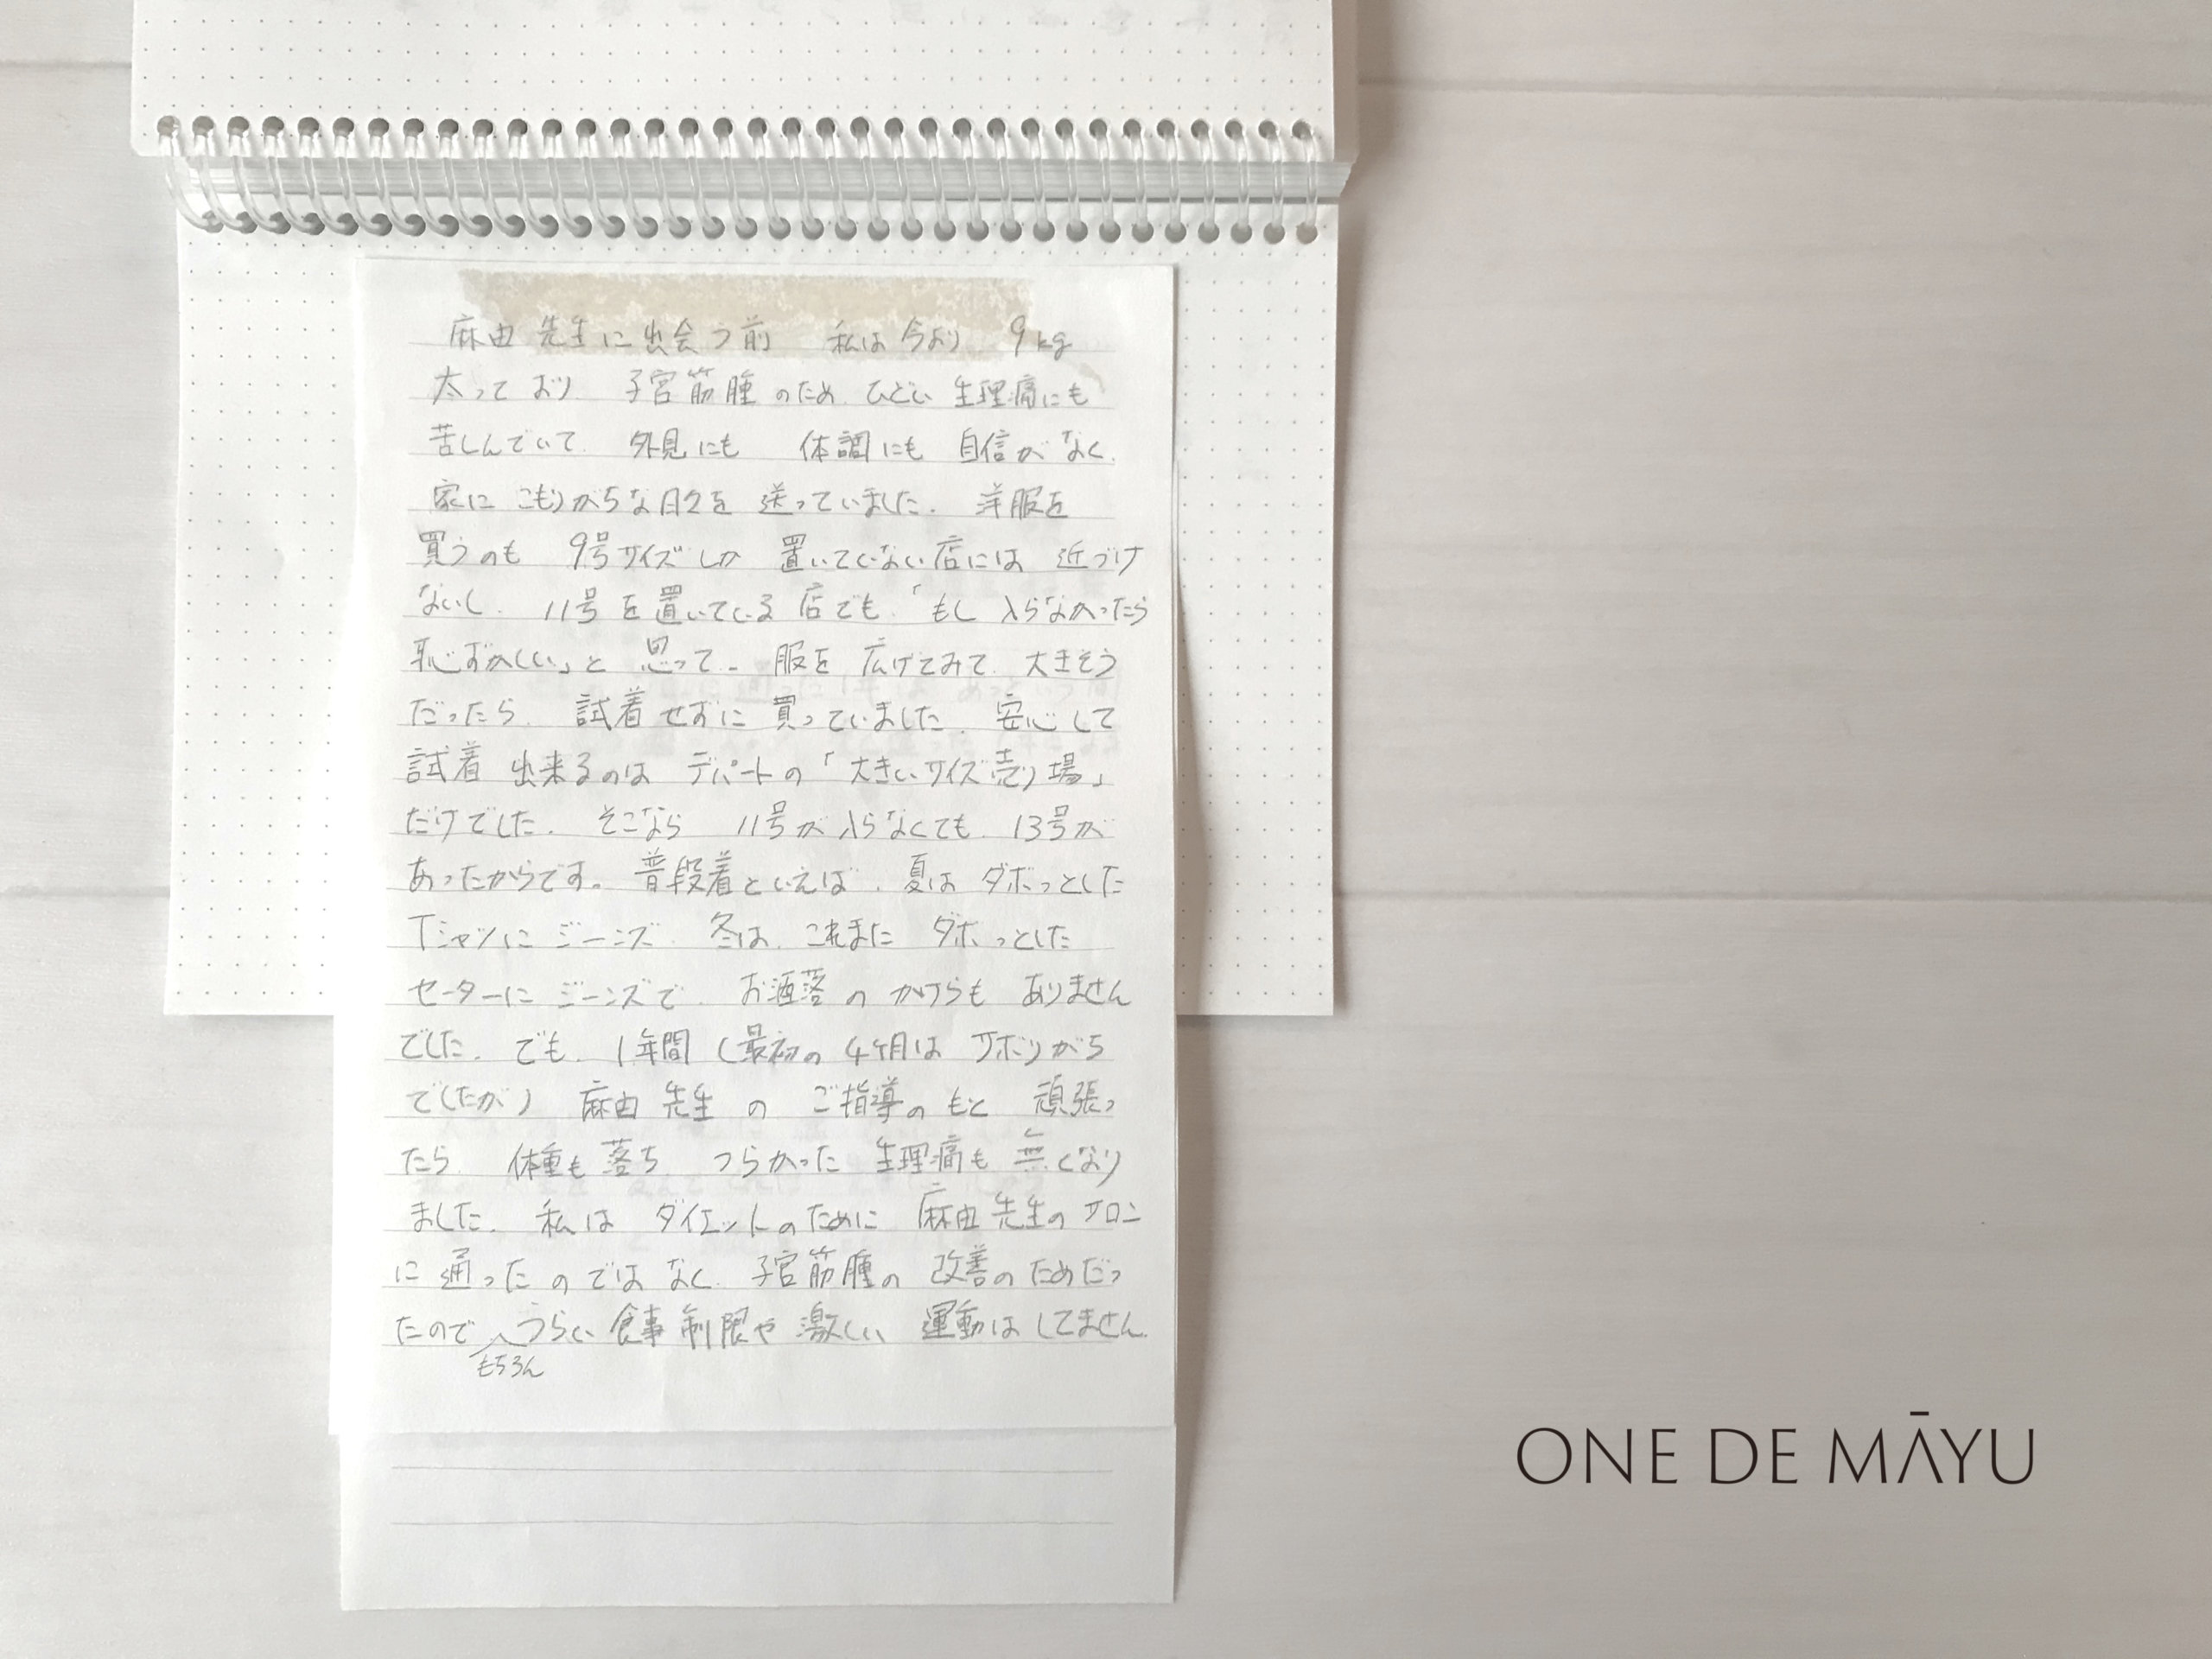 麻由先生に出会う前 私は今より 9kg
太っており 子宮筋腫のため ひどい生理痛にも
苦しんでいて 外見にも 体調にも 自信がなく
家に こもりがちな日々を 送っていました. 洋服を
買うのも 9号サイズしか 置いていない店には 近づけ
ないし. 11号を置いている店でも.「もし 入らなかったら
恥ずかしい」と 思って 服を 広げてみて 大きそう
だったら. 試着せずに 買っていました. 安心して
試着 出来るのは デパートの「大きいサイズ売り場」
だけでした. そこなら 11号が入らなくても. 13号が
あったからです。普段着といえば. 夏は ダボっとした
Tシャツに ジーンズ. 冬は. これまた ダボっとした
セーターに ジーンズで. お洒落の かけらも ありません
でした. でも. 1年間(最初の 4ヶ月は サボりがち
でしたが) 麻由先生の ご指導のもと 頑張っ
たら. 体重も落ち つらかった 生理痛も 無くなり
ました. 私は ダイエットのために 麻由先生のサロン
に通ったのではなく. 子宮筋腫の 改善のためだっ
たので つらい食事制限や激しい 運動はしてません.
もちろん
ONE DE MĀYU